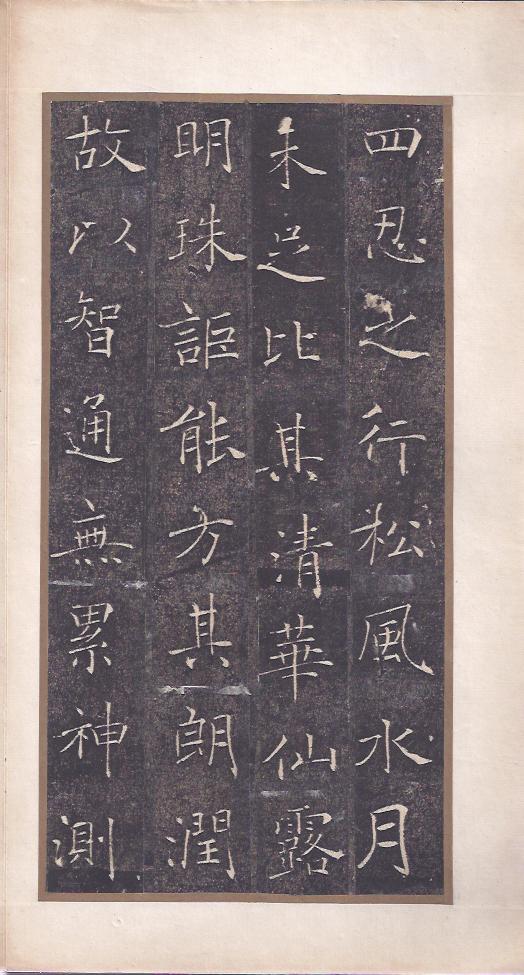 四忍之行松風水月
未足比其清華仙露
明珠詎能方其朗潤
故以智通無累神測